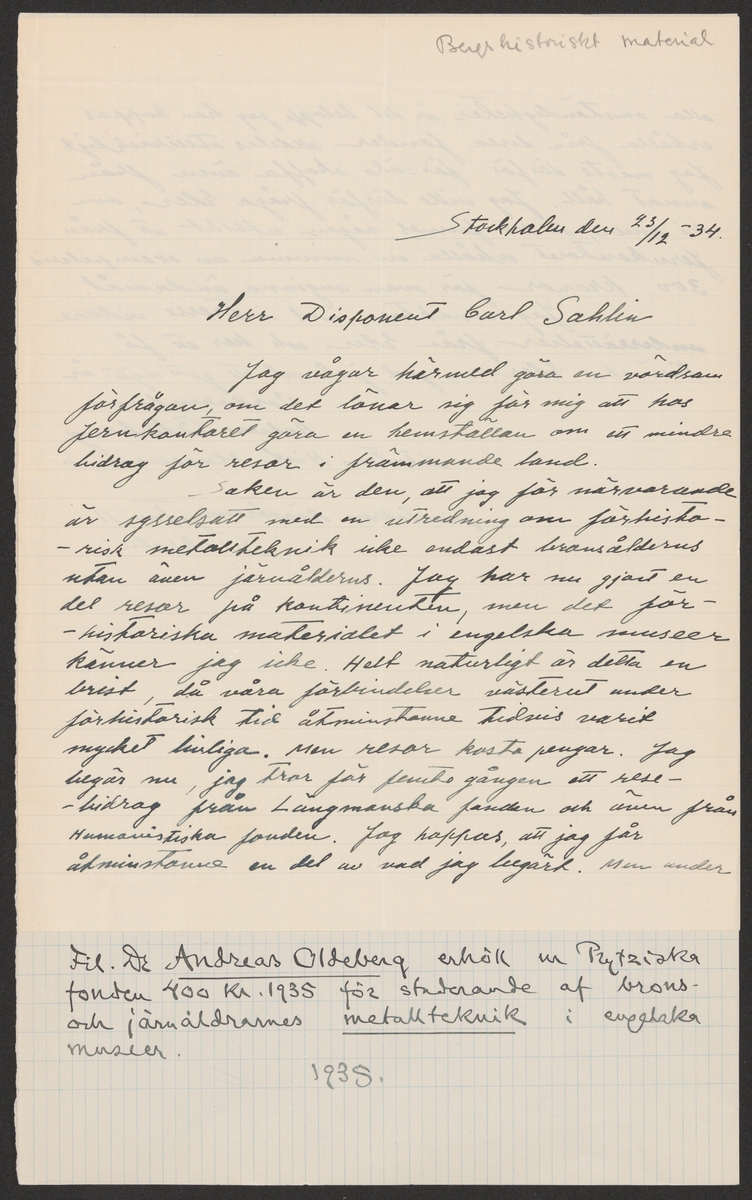 Bergshistoriskt material
Stockholm den 23/12 -34.
Herr Disponent Carl Sahlin
Jag vågar härmed göra en vördsam
förfrågan, om det lönar sig för mig att hos
Jernkontoret göra en hemställan om ett mindre
bidrag för resor i främmande land.
Saken är den, att jag för närvarande
är sysselsatt med en utredning om förhisto-
-risk metallteknik icke endast bronsålderns
utan även järnålderns. Jag har nu gjort en
del resor på kontinenten, men det för-
-historiska materialet i engelska museer
känner jag icke. Helt naturligt är detta en
brist, då våra förbindelser västerut under
förhistorisk tid åtminstonne tidvis varit
mycket livliga. Men resor kosta pengar. Jag
begär nu, jag tror för femte gången ett rese-
-bidrag från Längmanska fonden och även från
Humanistiska fonden. Jag hoppas, att jag får
åtminstonne en del av vad jag begärt. Men under
Fil. Dr Andreas Oldeberg erhöll ur Prytziska
fonden 400 Kr. 1935 för studerande af brons-
och järnåldrarnes metallteknik i engelska
museer.
1935.